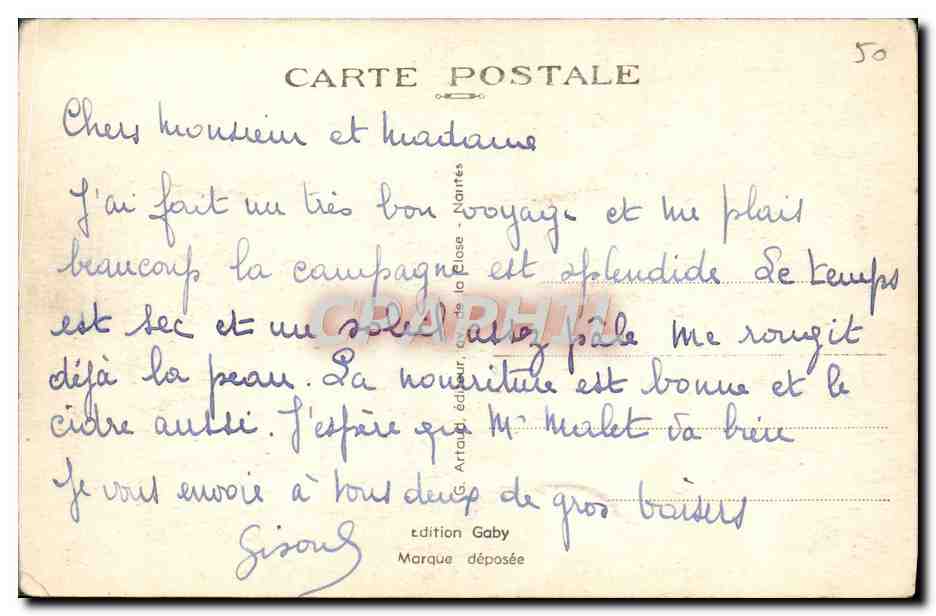 50
CARTE POSTALE
Chers Monsieur et Madame
J'ai fait un très bon voyage et me plais
beaucoup la campagne est splendide Le temps
est sec et un soleil assez pâle me rougit
déjà la peau. La nourriture est bonne et le
cidre aussi. J'espère que Mr Malet va bien
Je vous envoie à tous deux de gros baisers
G. Artaud, éditeur, av. de la Close - Nantes
CPARAMA
Edition Gaby
Marque déposée